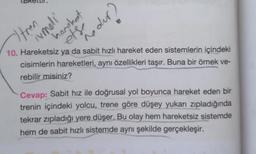 Tren
ivmeli
hareket
etse
ne olur?
10. Hareketsiz ya da sabit hızlı hareket eden sistemlerin içindeki
cisimlerin hareketleri, aynı özellikleri taşır. Buna bir örnek ve-
rebilir misiniz?
Cevap: Sabit hız ile doğrusal yol boyunca hareket eden bir
trenin içindeki yolcu, trene göre düşey yukarı zıpladığında
tekrar zıpladığı yere düşer. Bu olay hem hareketsiz sistemde
hem de sabit hızlı sistemde aynı şekilde gerçekleşir.